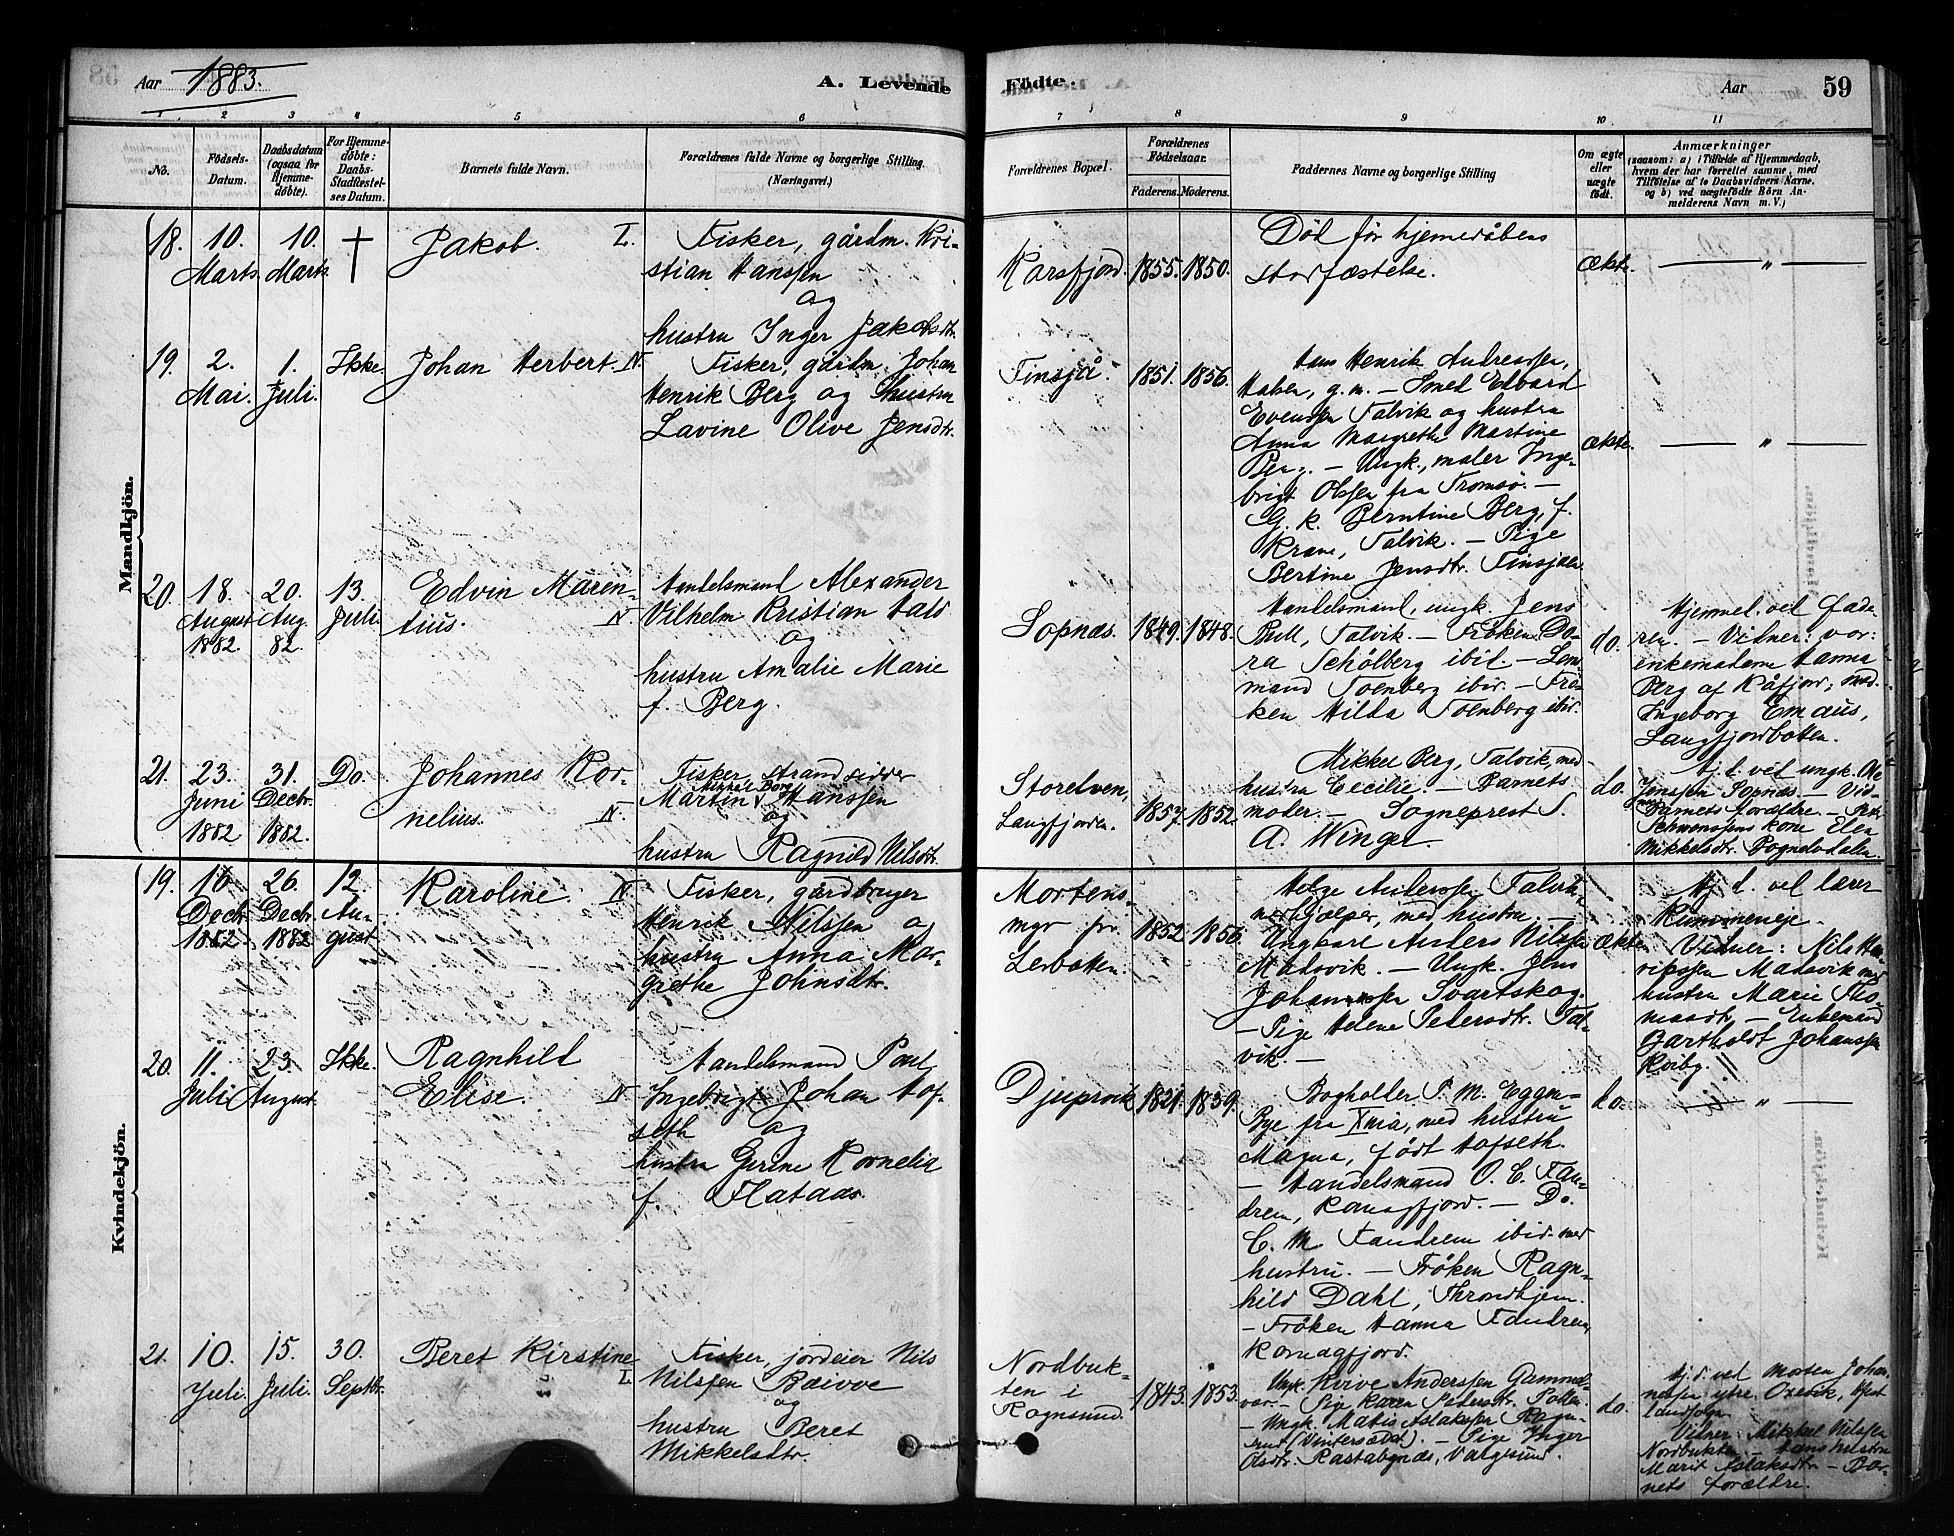 Aar 1883.
A. Levende
Födte.
Aar
59
1 2 3 4 5 6
7 8 9 10 11
No.
Födsels-
Datum.
Daabsdatum
(ogsaa for
Hjemme-
döbte).
For Hjemme-
döbte:
Daabs-
Stadfæstel-
ses Datum.
Barnets fulde Navn.
Forældrenes fulde Navne og borgerlige Stilling.
(Næringsvei.)
Forældrenes Bopæl.
Forældrenes
Födselsaar.
Faderens.
Moderens.
Faddernes Navne og borgerlige Stilling
Om ægte
eller
uægte
födt.
Anmærkninger
(saasom: a) i Tilfælde af Hjemmedaab,
hvem der har forrettet samme, med
Tilföielse af to Daabsvidners Navne,
og b) ved uægtefödte Börn An-
melderens Navn m. V.)
Mandkjön.
18.
10.
Marts.
10.
Marts.
†
Jakob. L.
Fisker, gårdm. Kri-
stian Hanssen
og
hustru Inger Jakobsdtr.
Korsfjord.
1855.
1850.
Död för hjemedåbens
stadfæstelse.
ækte.
— " —
19.
2.
Mai.
1.
Juli.
Ikke.
Johan Herbert. N.
Fisker, gårdm. Johan
Henrik Berg og hustru
Lavine Olive Jensdtr.
Finsjå.
1851.
1856.
Hans Henrik Andreassen,
Halsen, g.m. — Smed Edvard
Evensen Talvik og hustru
Anna Margrethe Martine
Berg. — Ungk., maler Inge-
brigt Olsen fra Tromsö. —
G. k. Berntine Berg, f.
Krane, Talvik. — Pige
Bertine Jensdtr. Finsjåen
ækte.
— " —
20.
18.
August
1882.
20.
Aug.
82.
13.
Juli
Edvin Maren-
tius. N
Handelsmand Alexander
Vilhelm Kristian Hald
og
hustru Amalie Marie
f. Berg.
Sopnæs.
1849.
1848.
Handelsmand, ungk. Jens
Bull, Talvik. — Fröken Do-
ra Schölberg ibid. — Lens-
mand Toenberg ibid. — Frö-
ken Hilda Toenberg ibid.
do.
Hjemmed. ved fade-
ren. — Vidner: vor:
enkemadame Hanna
Berg af Kåfjord; mad.
Ingeborg Emaus,
Langfjordbotten.
21.
23.
Juni
1882
31.
Decbr.
1882.
Do.
Johannes Kor-
nelius. N.
Fisker, strandsidder
Mikkel Berg
Martin v Hanssen
og
hustru Ragnild Nilsdtr.
Storelven,
Langfjorden.
1857.
1852.
Mikkel Berg, Talvik, med
hustru Cecilie. — Barnets
moder. — Sogneprest S.
A. Winger.
do.
Hj. d. ved ungk. Ole
Jenssen Sopnæs. — Vid-
ner: Barnets forældre. — Peder
Schwenssens kone Elen
Mikkelsdtr. Bognelvdalen.
Kvindekjön.
19.
16.
Decbr.
1882.
26.
Decbr.
1882
12.
Au-
gust
Karoline. N
Fisker, gårdbruger
Henrik Nilssen og
hustru Anna Mar-
grethe Johnsdtr.
Mortens-
myr pr.
Lerbotten.
1852
1856.
Helge Anderssen Talvik
med hustru. —
Ungkarl Anders Nilssen
Madsvik. — Ungk. Jens
Johannessen Svartskog.
— Pige Helene Pedersdtr. Tal-
vik. —
ækte
Hj. d. ved lærer
Vidner: Nils Hen-
rikssen Madsvik med
hustru Marie Tho-
masdtr. — Enkemand
Gartholdt Johanssen
Kviby.
20.
11.
Juli
23.
August.
Ikke.
Ragnhild
Elise. N
Handelsmand Poul
Ingebrigt Johan Hof-
seth og
hustru Gurine Kornelia
f. Flataas.
Djupvik
1821.
1839.
Bogholder P. M. Eggen-
Bye fra Xnia, med hustru
Magna, född Hofseth.
— Handelsmand O. C. Fan-
drem, Komagfjord. — Do.
C. M. Fandrem ibid. med
hustru. — Fröken Ragn-
hild Dahl, Throndhjem.
— Fröken Hanna Fandrem,
Komagfjord.
do.
— " —
21.
10.
Juli.
15.
Juli.
30.
Septbr.
Beret Kirstine
L.
Fisker, jordeier Nils
Nilssen Bæivve
og
hustru Beret
Mikkelsdtr.
Nordbuk-
ten i
Rognsund.
1843.
1853.
Ungk. Kvive Anderssen Gammel-
vær. — Pige Karen Pedersdtr. Pollen.
— Ungk. Matis Aslakssen Rogn-
sund (Vintersædet). — Pige Inger
Olsdtr. Rastabynæs, Vargsund.
do.
Hj. d. ved Morten Johan-
nessen ytre Oxevik,
Vidner: Mikkel Nilssen
Nordbukten — Hans hustru
Marit Aslaksdtr. — Bar-
nets forældre.